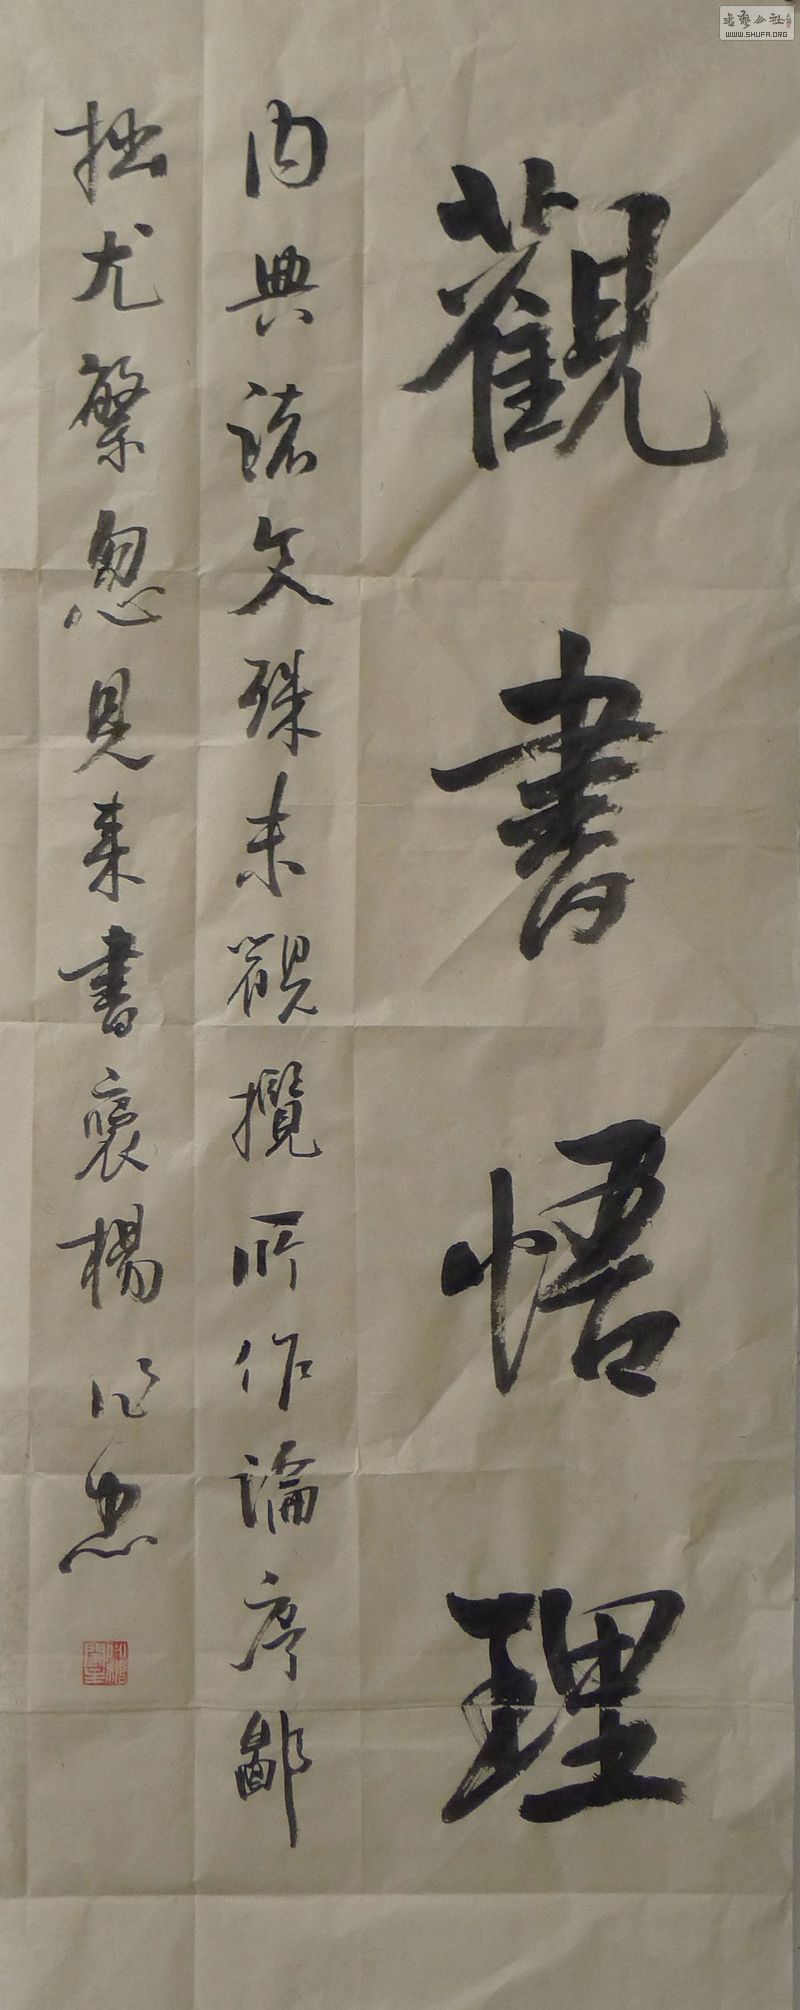 觀書悟理
内典諸文殊未觀攬所作論序鄙
拙尤繁忽見来書褒揚
書藝公社
WWW.SHUFA.ORG